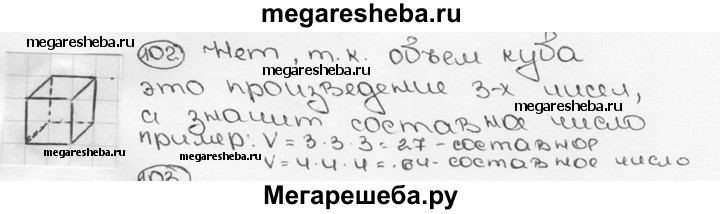 megaresheba.ru
102. Нет, т.к. объем куба
megaresheba.ru
megaresheba.ru
это произведение 3-х чисел,
megaresheba.ru
а значит составное число
пример: V = 3·3·3 = 27 - составное
megaresheba.ru
megaresheba.ru
V = 4·4·4 = 64 - составное число
103
Мегарешеба.ру